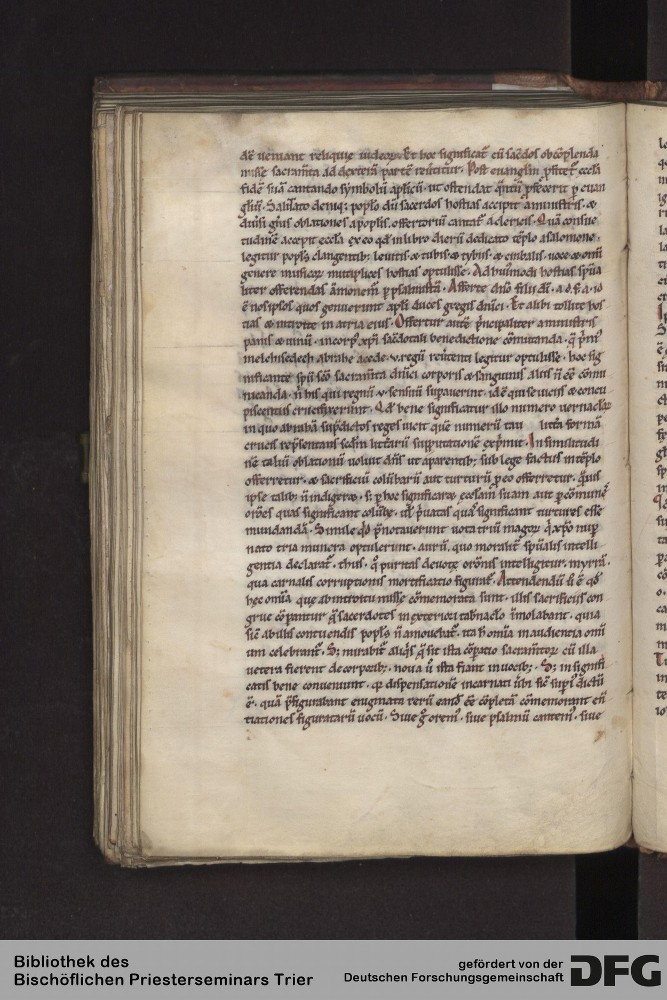 dē veniant reliquię iudeoꝝ. Et hoc significat̄ cū sac̄dos ob cōplenda
misse sacram̄ta ad dexterā partē reu̅titur. Post euanḡliū ꝓfitet̄ eccl̄a
fidē suā cantando symbolū apl̄icū. ut ostendat q̄ntū ꝓfecerit ꝑ euan
gliū. Salutato deniqꝫ popl̄o dū sacerdos hostias accipit a ministris. ⁊
diu̅si gn̅is oblationes a popl̄is. offertoriū cantat̄ a clericis. Quā consue
tudinē accepit eccl̄a ex eo qd̄ in libro dierū dedicato tēplo a salomone.
legitur popl̄s clangentibꝫ leuitis ⁊ tubis ⁊ cybis ⁊ cimbalis uoce ⁊ om̄i
genere musicoꝝ mutiplices hostias optulisse. Ad hui̅modi hostias sp̄ua
liter offerendas āmonem̄ ꝑ psalmistā. Afferte dn̄o filii dī. a. d. f. a. id
ē nos ipsos quos genuerunt apl̄i duces gregis dn̄ici. Et alibi tollite hos
tias ⁊ introite in atria eius. Offertur autē p̄ncipaliter a ministris
panis ⁊ uinū. in corp̄ xp̄i sac̄dotali benedictione cōmutanda. q̄ p̄m̄
melchisedech abrahę a cede .v. regū reu̅tenti legitur optulisse. hoc sig
nificante spū scō sacram̄ta dn̄ici corporis ⁊ sanguinis aliis n̄ eē cōmu
nicanda. n̄ his qui regnū .v. sensuū supauerint. id ē qui se uiciis ⁊ concu
piscentiis crucifixerunt. Qd̄ bene significatur illo numero uernaclōꝝ
in quo abrahā sup̄dictos reges uicit quē numerū tau litt̄a formā
crucis rep̄sentans scdm̄ litt̄arū supputationē exp̄mit. In similitudi
nē taliū oblationū uoluit dn̄s ut a parentibꝫ sub lege factus in tēplo
offerretur. ⁊ sacrificiū colūbarū aut turturū ꝑ eo offerretur. q̄uis
ipse talibꝫ n̄ indigeret. sꝫ ꝑ hoc significaret ecclesiā suam aut ꝑ cōmunes
orōes quas significant colūbę. ul̄ p̄uatas quas significant turtures esse
mundandā. Simile qd̄ p̄notauerunt uota triū magoꝝ q̄ xp̄o nup̄
nato tria munera optulerunt. aurū. quo moralit̄ sp̄ualis intelli
gentia declarat̄. thus. q̄ puritas deuotę orōnis intelligitur. myrrā.
qua carnalis corruptionis mortificatio figurat̄. Attendendū ē qd̄
hęc om̄ia quę ab introitu missę cōmemorata sunt. illis sacrificiis con
grue cōparantur q̄ sacerdotes in exteriori tabn̄aclo īmolabant. quia
sic̄ ab illis contuendis popl̄s n̄ amouebat̄. ita h̄ om̄ia in audientia om̄i
um celebrant̄. Sꝫ mirabit̄ aliq̄s q̄ sit ista cōparatio sacram̄toꝝ cū illa
uetera fierent de corporibꝫ. noua ū ista fiant in uocibꝫ. Sꝫ in signifi
catis bene conueniunt. qꝫ dispensationē incarnati u̅bi sic̄ sup̄i᷎ dictū
ē. quā p̄figurabant enigmata rerū eand̄ eē cōpletā cōmemorant en̄
tiationes figuratarū uocū. Siue g̊ orem᷎. siue psalmū cantem᷎. siue
Bibliothek des
Bischöflichen Priesterseminars Trier
gefördert von der
Deutschen Forschungsgemeinschaft
DFG